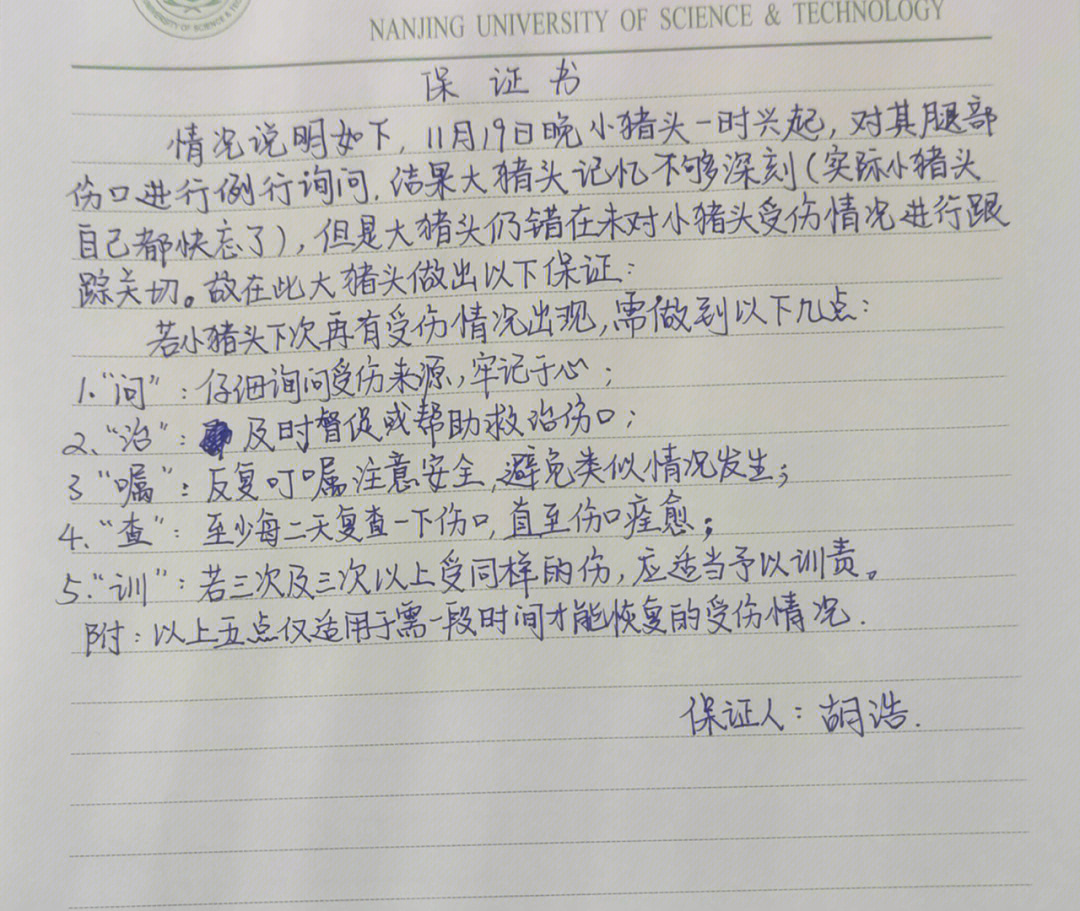 UNIVERSITY OF SCIENCE & TECH
NANJING UNIVERSITY OF SCIENCE & TECHNOLOGY
保 证 书
情况说明如下，11月19日晚小猪头一时兴起，对其腿部
伤口进行例行询问，结果大猪头记忆不够深刻（实际小猪头
自己都快忘了），但是大猪头仍错在未对小猪头受伤情况进行跟
踪关切。故在此大猪头做出以下保证：
若小猪头下次再有受伤情况出现，需做到以下几点：
1.“问”：仔细询问受伤来源，牢记于心；
2、“治”：及时督促或帮助救治伤口；
3“嘱”：反复叮嘱注意安全，避免类似情况发生；
4、“查”：至少每二天复查一下伤口，直至伤口痊愈；
5.“训”：若三次及三次以上受同样的伤，应适当予以训责。
附：以上五点仅适用于需一段时间才能恢复的受伤情况.
保证人：胡浩.